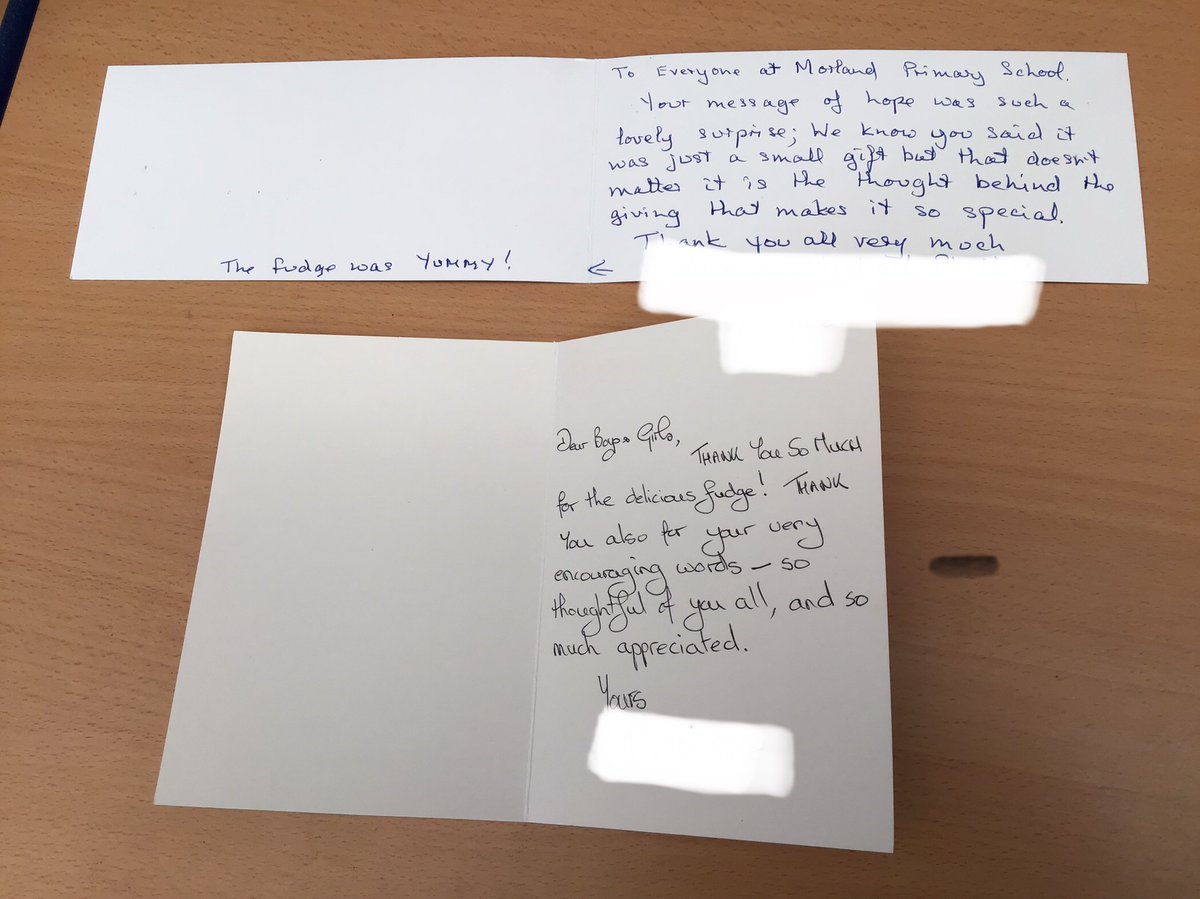 To Everyone at Morland Primary School.
Your message of hope was such a
lovely surprise; We know you said it
was just a small gift but that doesn't
matter it is the thought behind the
giving that makes it so special.
Thank you all very much
The fudge was YUMMY! ←
Dear Boys & Girls,
THANK YOU SO MUCH
for the delicious fudge! THANK
You also for your very
encouraging words – so
thoughtful of you all, and so
much appreciated.
Yours